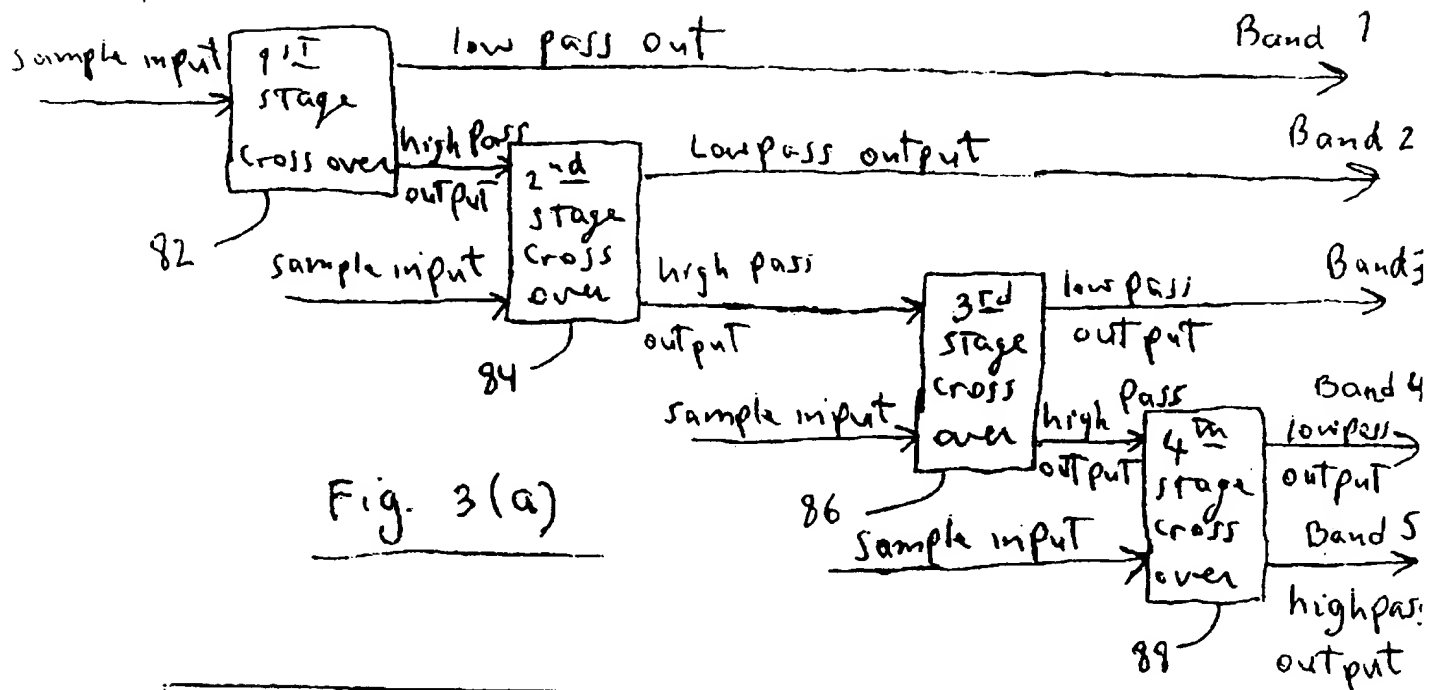 sample input
1'st
stage
cross over
low pass out
Band 1
high Pass
output
2nd
stage
cross
over
Low pass output
Band 2
82
sample input
high pass
output
3rd
stage
cross
over
low pass
output
Band 3
84
sample input
high pass
output
4th
stage
cross
over
Band 4
low pass
output
Fig. 3(a)
86
sample input
Band 5
high pass
output
88